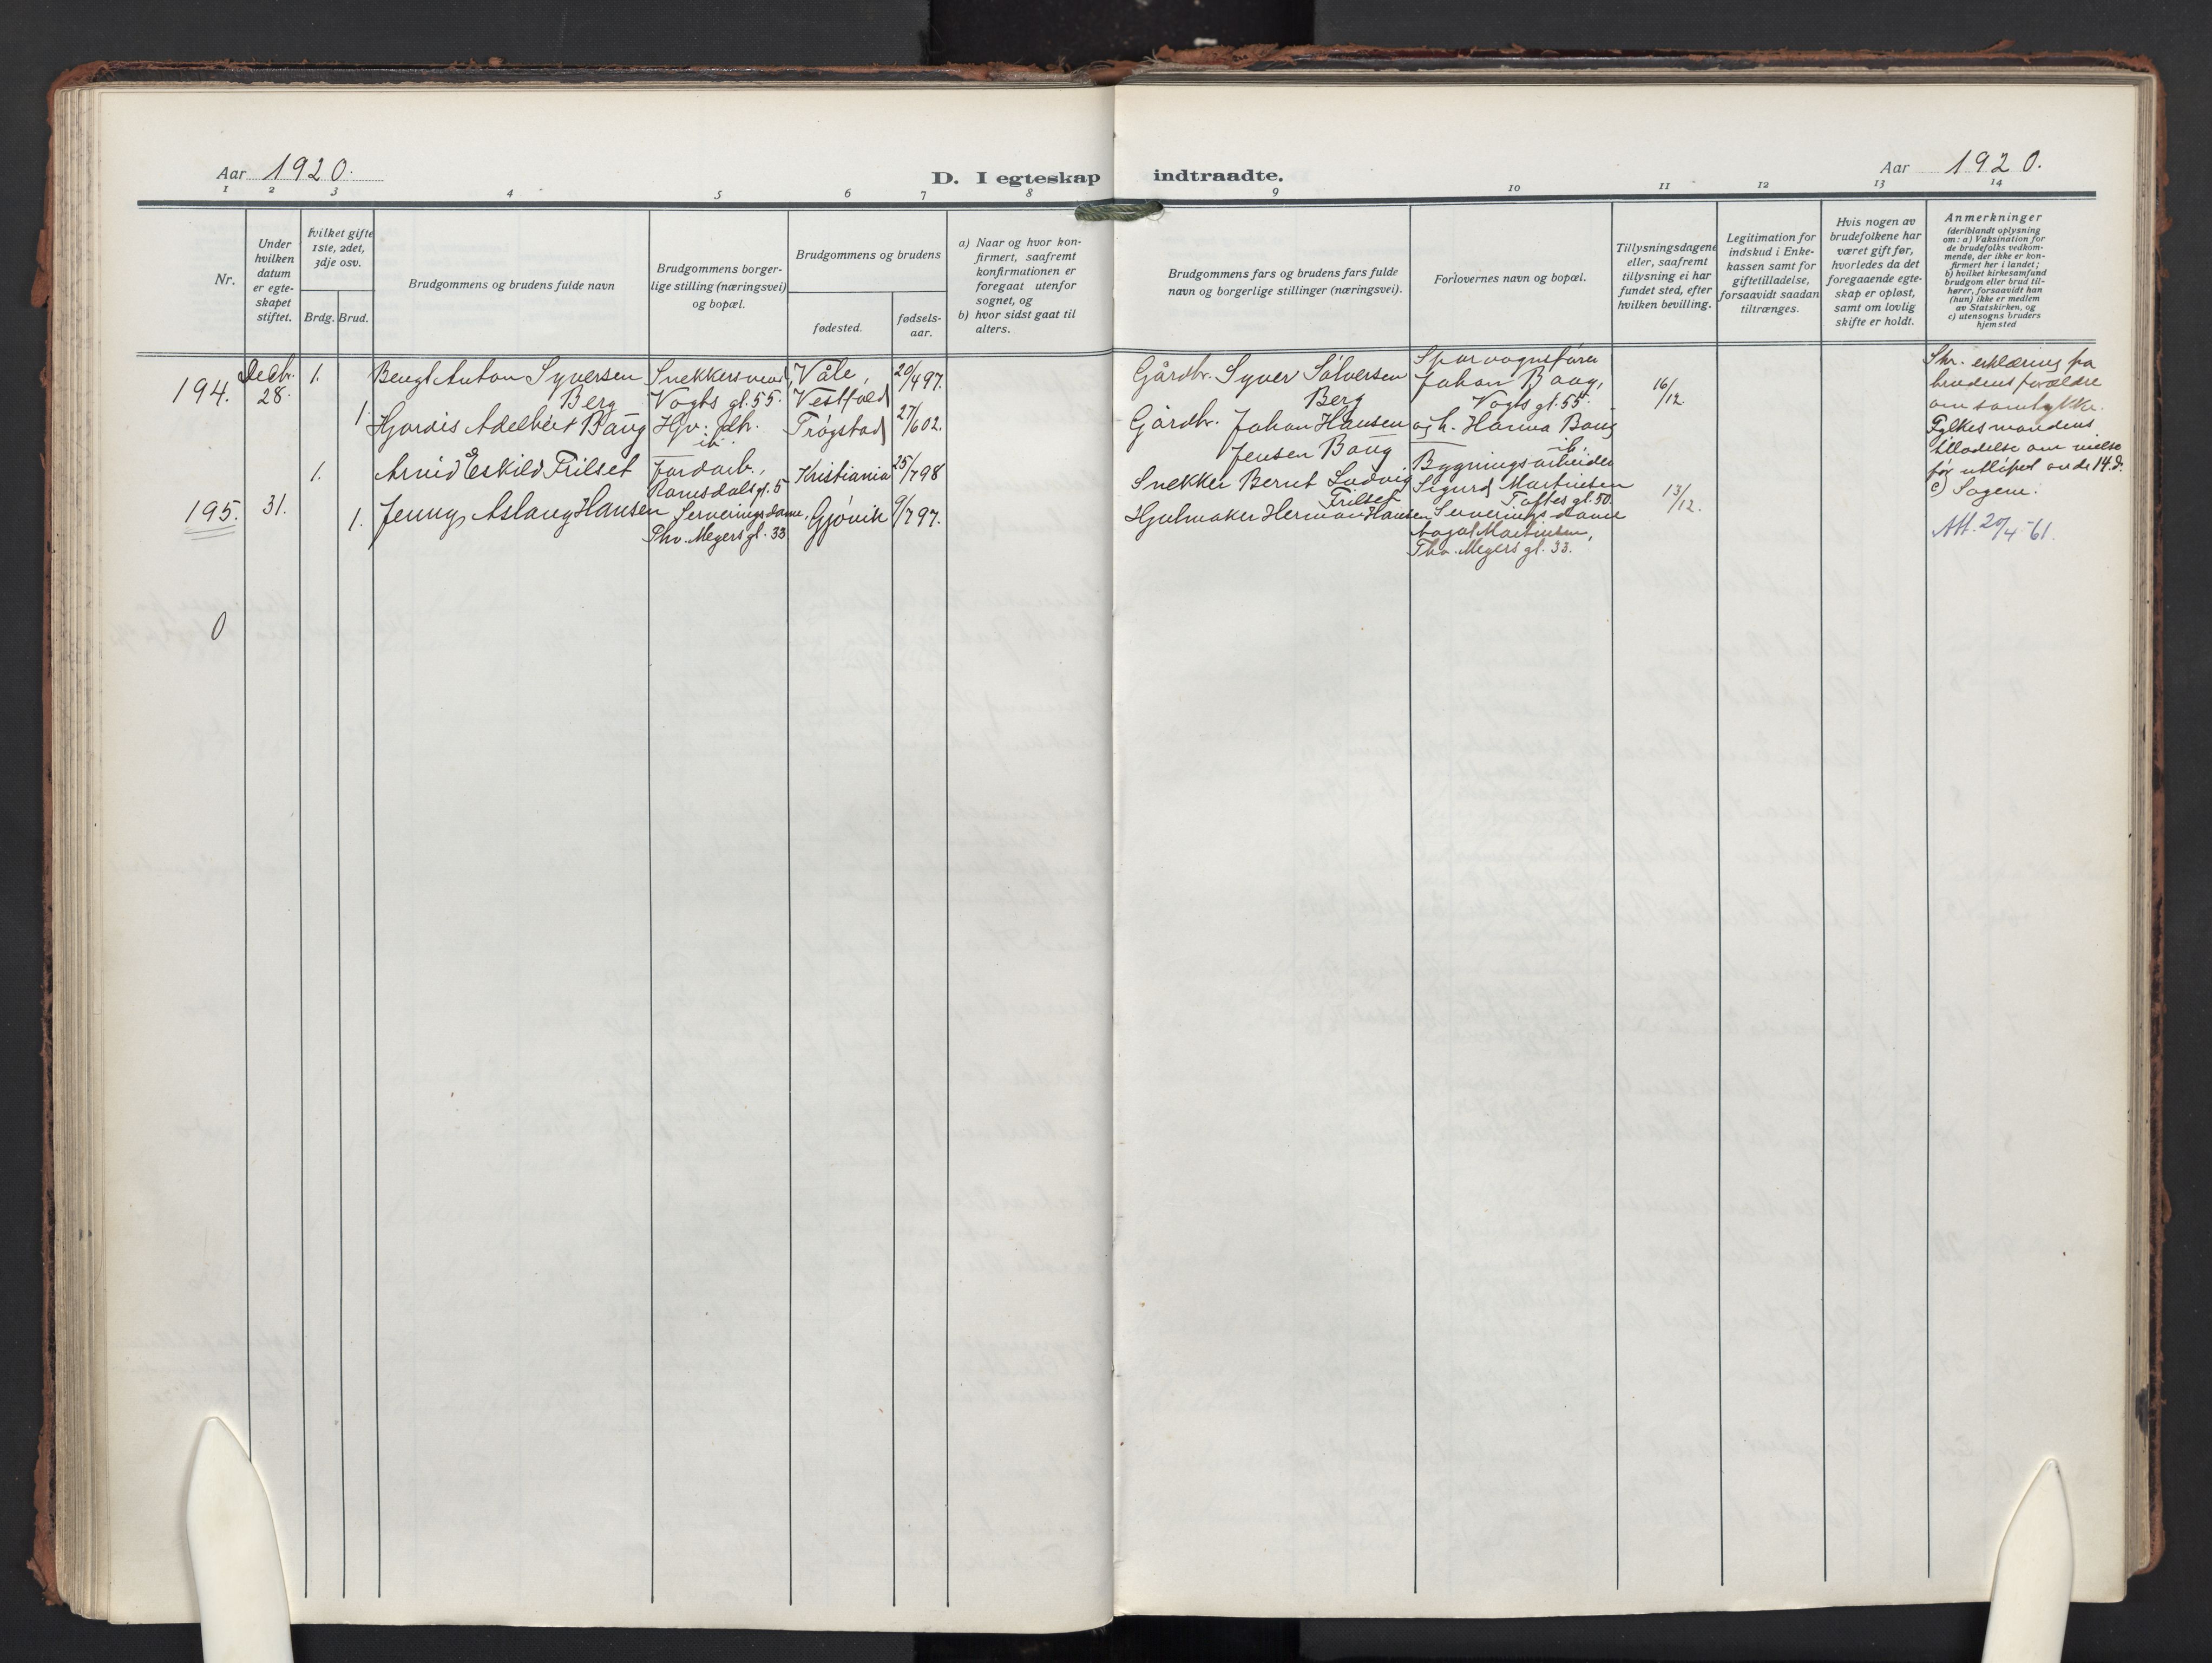 Aar 1920.
D. I egteskap indtraadte.
Aar 1920.
1 2 3 4 5 6 7 8 9 10 11 12 13 14
Nr.
Under
hvilken
datum
er egte-
skapet
stiftet.
hvilket gifte
1ste, 2det,
3dje osv.
Brdg. Brud.
Brudgommens og brudens fulde navn
Brudgommens borger-
lige stilling (næringsvei)
og bopæl.
Brudgommens og brudens
fødested.
fødsels-
aar.
a) Naar og hvor kon-
firmert, saafremt
konfirmationen er
foregaat utenfor
sognet, og
b) hvor sidst gaat til
alters.
Brudgommens fars og brudens fars fulde
navn og borgerlige stillinger (næringsvei).
Forlovernes navn og bopæl.
Tillysningsdagene
eller, saafremt
tillysning ei har
fundet sted, efter
hvilken bevilling.
Legitimation for
indskud i Enke-
kassen samt for
giftetilladelse,
forsaavidt saadan
tiltrænges.
Hvis nogen av
brudefolkene har
været gift før,
hvorledes da det
foregaaende egte-
skap er opløst,
samt om lovlig
skifte er holdt.
Anmerkninger
(deriblandt oplysning
om: a) Vaksination for
de brudefolks vedkom-
mende, der ikke er kon-
firmert her i landet;
b) hvilket kirkesamfund
brudgom eller brud til-
hører, forsaavidt han
(hun) ikke er medlem
av Statskirken, og
c) utensogns bruders
hjemsted
194.
Decbr.
28.
1.
Bengt Anton Syversen
Berg
Snekkersvend,
Vogts gt. 55.
Våle,
Vestfold
20/4 97.
Gårdbr. Syver Sølversen
Berg
Sporvognsfører
Johan Baug,
Vogts gt. 55.
16/12
1.
Hjørdis Adelheit Baug
Hjv. dtr.
ib.
Trøgstad
27/6 02.
Gårdbr. Johan Hansen
Jensen Baug
og h. Hanna Baug
ib.
Skr. erklæring fra
brudens forældre
om samtykke.
Fylkesmandens
tilladelse om vielse
før utløpet av de 14 d.
c) Sagene.
195.
31.
1.
Arvid Eskild Frilset
Jordarb.,
Romsdalsgt. 5
Kristiania
25/7 98
Snekker Bernt Ludvig
Frilset
Bygningsarbeider
Sigurd Martinsen
Toftes gt. 50.
13/12.
1.
Jenny Aslaug Hansen
Serveringsdame,
Thv. Meyers gt. 33
Gjøvik
9/7 97.
Hjulmaker Herman Hansen
Serveringsdame
Aagot Martinsen,
Thv. Meyers gt. 33.
Att. 20/4-61.
0